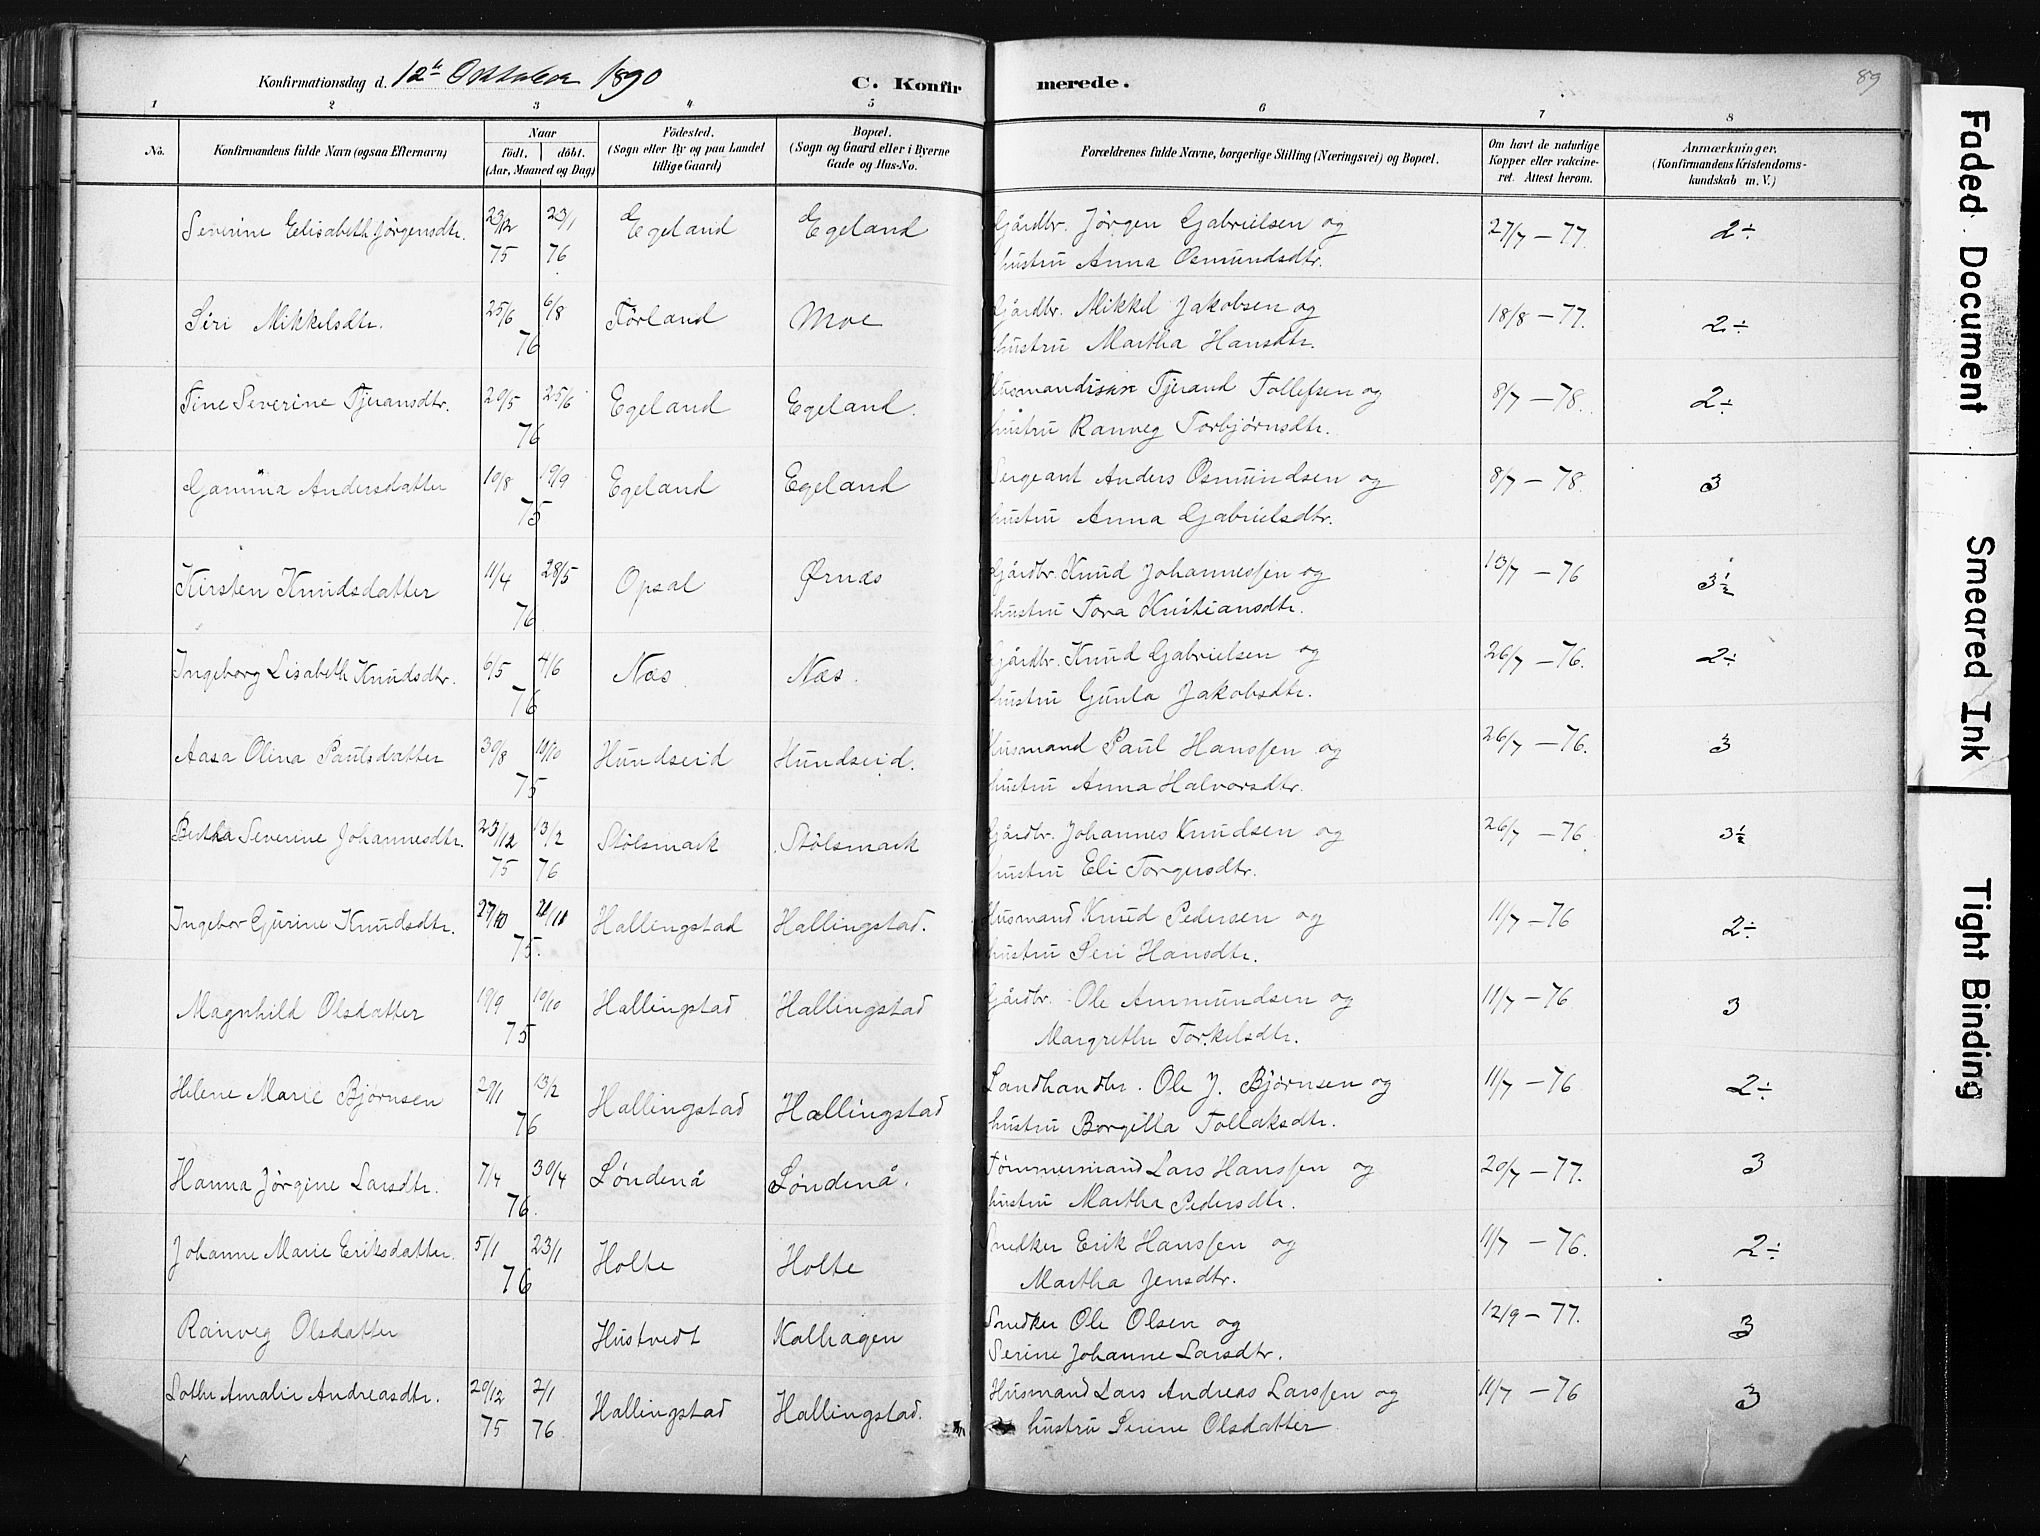 Konfirmationsdag d. 12te Oktober 1890 C. Konfirmerede. 89
1 2 3 4 5 6 7 8
No. Konfirmandens fulde Navn (ogsaa Efternavn) Naar født. døbt. (Aar, Maaned og Dag) Födested. (Sogn eller By og paa Landet tillige Gaard) Bopæl. (Sogn og Gaard eller i Byerne Gade og Hus-No. Forældrenes fulde Navne, borgerlige Stilling (Næringsvei) og Bopæl. Om havt de naturlige Kopper eller vakcineret. Attest herom. Anmærkninger. (Konfirmandens Kristendomskundskab m. V.)
Severine Elisabeth Jørgensdtr. 23/12 75 23/1 76 Egeland Egeland Gårdbr. Jørgen Gabrielsen og 27/7 – 77. 2÷
hustru Anna Osmundsdtr.
Siri Mikkelsdtr. 25/6 6/8 76 Førland Moe Gårdbr. Mikkel Jakobsen og 18/8 – 77. 2÷
hustru Martha Hansdtr.
Tine Severine Tjeransdtr. 29/5 25/6 76 Egeland Egeland. Tjerand Tollefsen og 8/7 – 78. 2÷
hustru Ranveg Torbjørnsdtr.
Gamina Andersdatter 10/8 19/9 75 Egeland Egeland Sergeant Anders Osmundsen og 8/7 – 78. 3
hustru Anna Gabrielsdtr.
Kirsten Knudsdatter 11/4 28/5 76 Opsal Ørnæs Gårdbr. Knud Johannessen og 13/7 – 76 3½
hustru Tora Kristiansdtr.
Ingeborg Lisabeth Knudsdtr. 6/5 4/6 76 Næs. Næs. Gårdbr. Knud Gabrielsen og 26/7 – 76. 2÷
hustru Gunla Jakobsdtr.
Aasa Olina Paulsdatter 30/8 10/10 75 Hundseid Hundseid. Husmand Paul Hanssen og 26/7 – 76. 3
hustru Anna Halvorsdtr.
Bertha Severine Johannesdtr. 23/12 75 13/2 76 Stølsmark Stølsmark Gårdbr. Johannes Knudsen og 26/7 – 76. 3½
hustru Eli Torgersdtr.
Ingebor Gurine Knudsdtr. 27/10 21/11 75. Hallingstad Hallingstad. Husmand Knud Pedersen og 11/7 – 76 2÷
hustru Seri Hansdtr.
Magnhild Olsdatter 19/9 10/10 75 Hallingstad Hallingstad Gårdbr. Ole Ammundsen og 11/7 – 76 3
Margrethe Torkelsdtr.
Helene Marie Bjørnsen 29/1 13/2 76 Hallingstad Hallingstad Landhandlr. Ole J. Bjørnsen og 11/7 – 76 2÷
hustru Borgilla Tollaksdtr.
Hanna Jørgine Larsdtr. 7/4 30/4 76. Søndenå Søndenå. Tømmermand Lars Hanssen og 20/7 – 77. 3
hustru Martha Pedersdtr.
Johanne Marie Eriksdatter. 5/1 23/1 76 Holte Holte Snedker Erik Hanssen og 11/7 – 76. 2÷
Martha Jensdtr.
Ranveg Olsdatter Hustvedt Kalhagen Snedker Ole Olsen og 12/9 – 77. 3
Serine Johanne Larsdtr.
Lothe Amalie Andreasdtr. 20/12 75 2/1 76 Hallingstad Hallingstad. Husmand Lars Andreas Larssen og 11/7 – 76 3
hustru Serine Olsdatter
Faded Document
Smeared Ink
Tight Binding